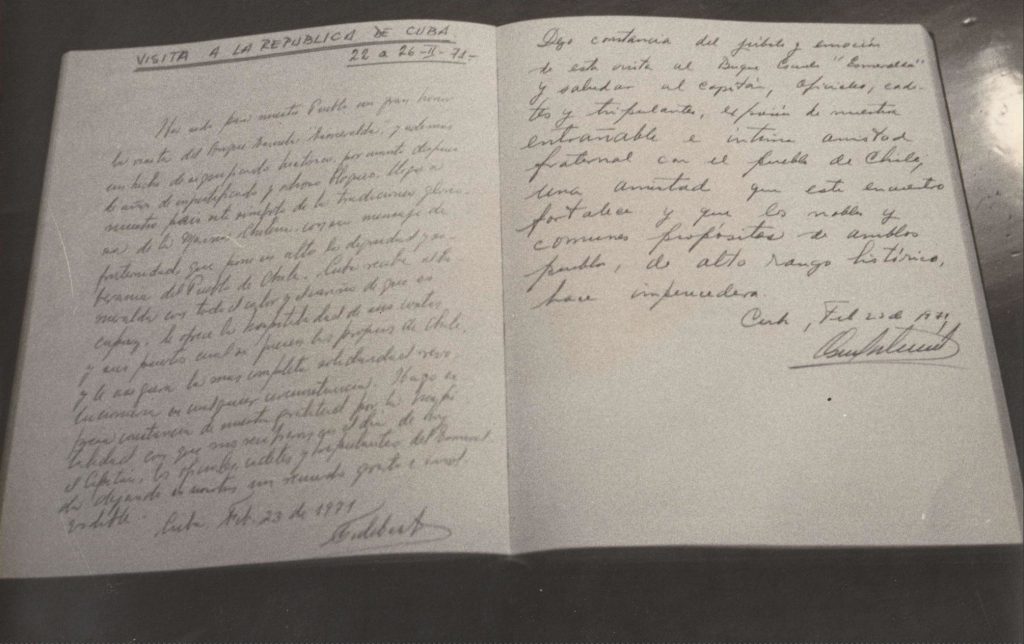 VISITA A LA REPUBLICA DE CUBA
22 a 26-II-71-
Ha sido para nuestro Pueblo un gran honor
la visita del Buque Escuela Esmeralda, y además
un hecho de significado histórico, por cuanto después
de años de injustificado y odioso bloqueo, llega a
nuestro país este símbolo de la tradiciones glorio-
sas de la Marina Chilena con un mensaje de
fraternidad, que pone en alto la dignidad y so-
beranía del Pueblo de Chile. Cuba recibe al Es-
meralda con todo el calor y el cariño de que es
capaz, le ofrece la hospitalidad de sus costas
y sus puertos cual si fueran los propios de Chile,
y le asegura la más completa solidaridad revo-
lucionaria en cualquier circunstancia. Hago es-
pecial constancia de nuestra gratitud por la hospi-
talidad con que nos recibieron en el día de hoy
el Capitán, los oficiales, cadetes y tripulantes del Esmeral-
da dejando en nosotros un recuerdo grato e inol-
vidable.
Cuba, Feb. 23 de 1971
Fidel Castro
Dejo constancia del júbilo y emoción
de esta visita al Buque Escuela "Esmeralda"
y saludar al capitán, oficiales, cade-
tes y tripulantes, expresión de nuestra
entrañable e íntima amistad
fraternal con el pueblo de Chile,
una amistad que este encuentro
fortalece y que los nobles y
comunes propósitos de ambos
pueblos, de alto rango histórico,
hace imperecedera.
Cuba, Feb 23 de 1971,